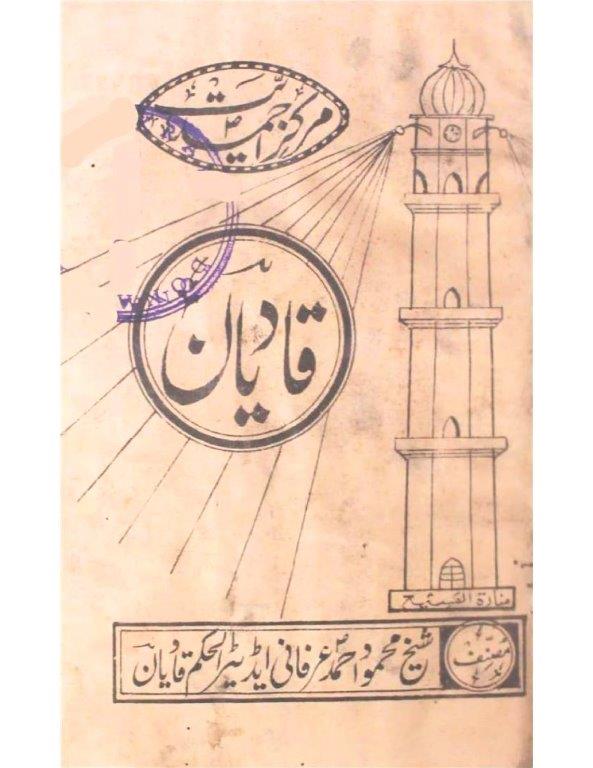 مرکز احمدیت
قادیان
منارة المسیح
مصنف
شیخ محمود احمد عرفانی ایڈیٹر الحکم قادیان